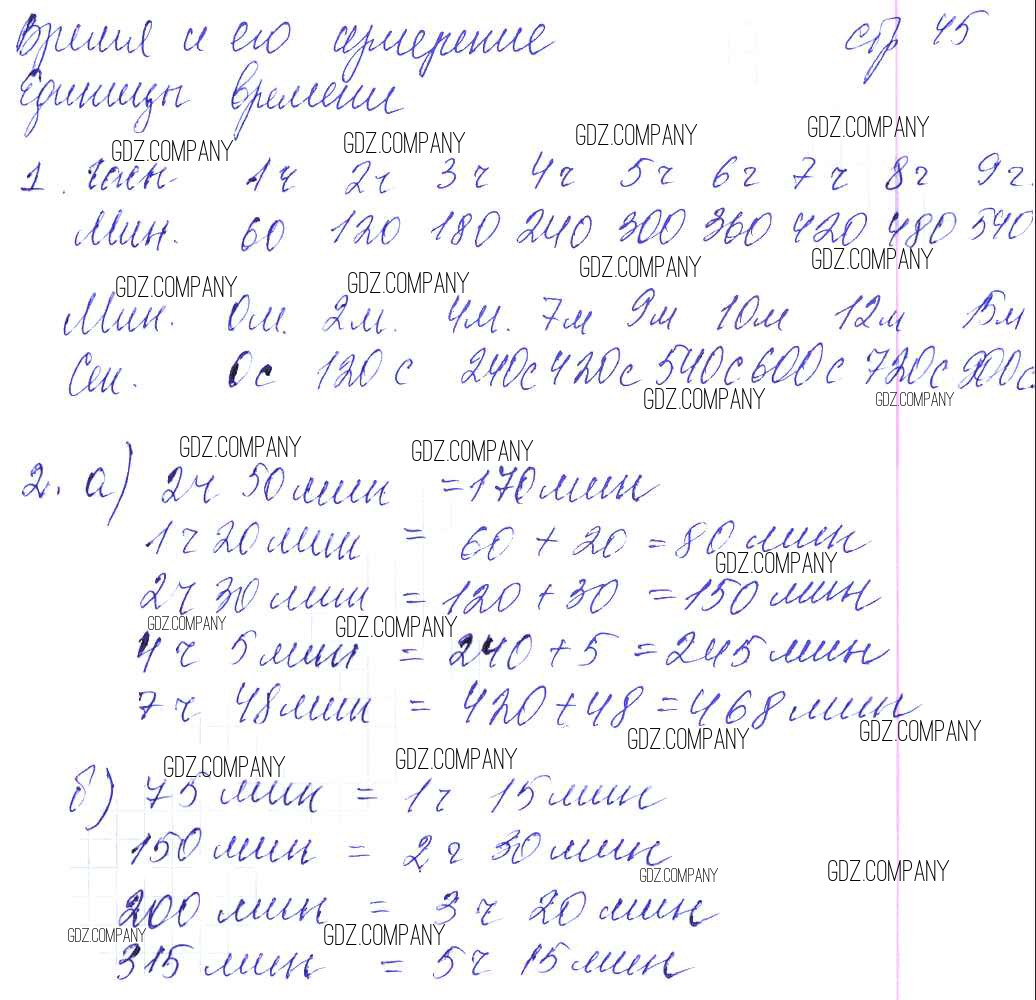 Время и его измерение стр 45
Единицы времени
GDZ.COMPANY GDZ.COMPANY GDZ.COMPANY GDZ.COMPANY
1. 1ч 2ч 3ч 4ч 5ч 6ч 7ч 8ч 9ч
Мин. 60 120 180 240 300 360 420 480 540
GDZ.COMPANY GDZ.COMPANY GDZ.COMPANY GDZ.COMPANY
Мин. 0м. 2м. 4м. 7м 9м 10м 12м 15м
Сек. 0с 120с 240с 420с 540с 600с 720с 900с
GDZ.COMPANY GDZ.COMPANY
GDZ.COMPANY GDZ.COMPANY
2. а) 2ч 50 мин = 170 мин
1ч 20 мин = 60 + 20 = 80 мин
GDZ.COMPANY
2ч 30 мин = 120 + 30 = 150 мин
GDZ.COMPANY GDZ.COMPANY
4ч 5 мин = 240 + 5 = 245 мин
7ч 48 мин = 420 + 48 = 468 мин
GDZ.COMPANY GDZ.COMPANY
GDZ.COMPANY GDZ.COMPANY
б) 75 мин = 1ч 15 мин
150 мин = 2ч 30 мин
GDZ.COMPANY GDZ.COMPANY
200 мин = 3ч 20 мин
GDZ.COMPANY GDZ.COMPANY
315 мин = 5ч 15 мин